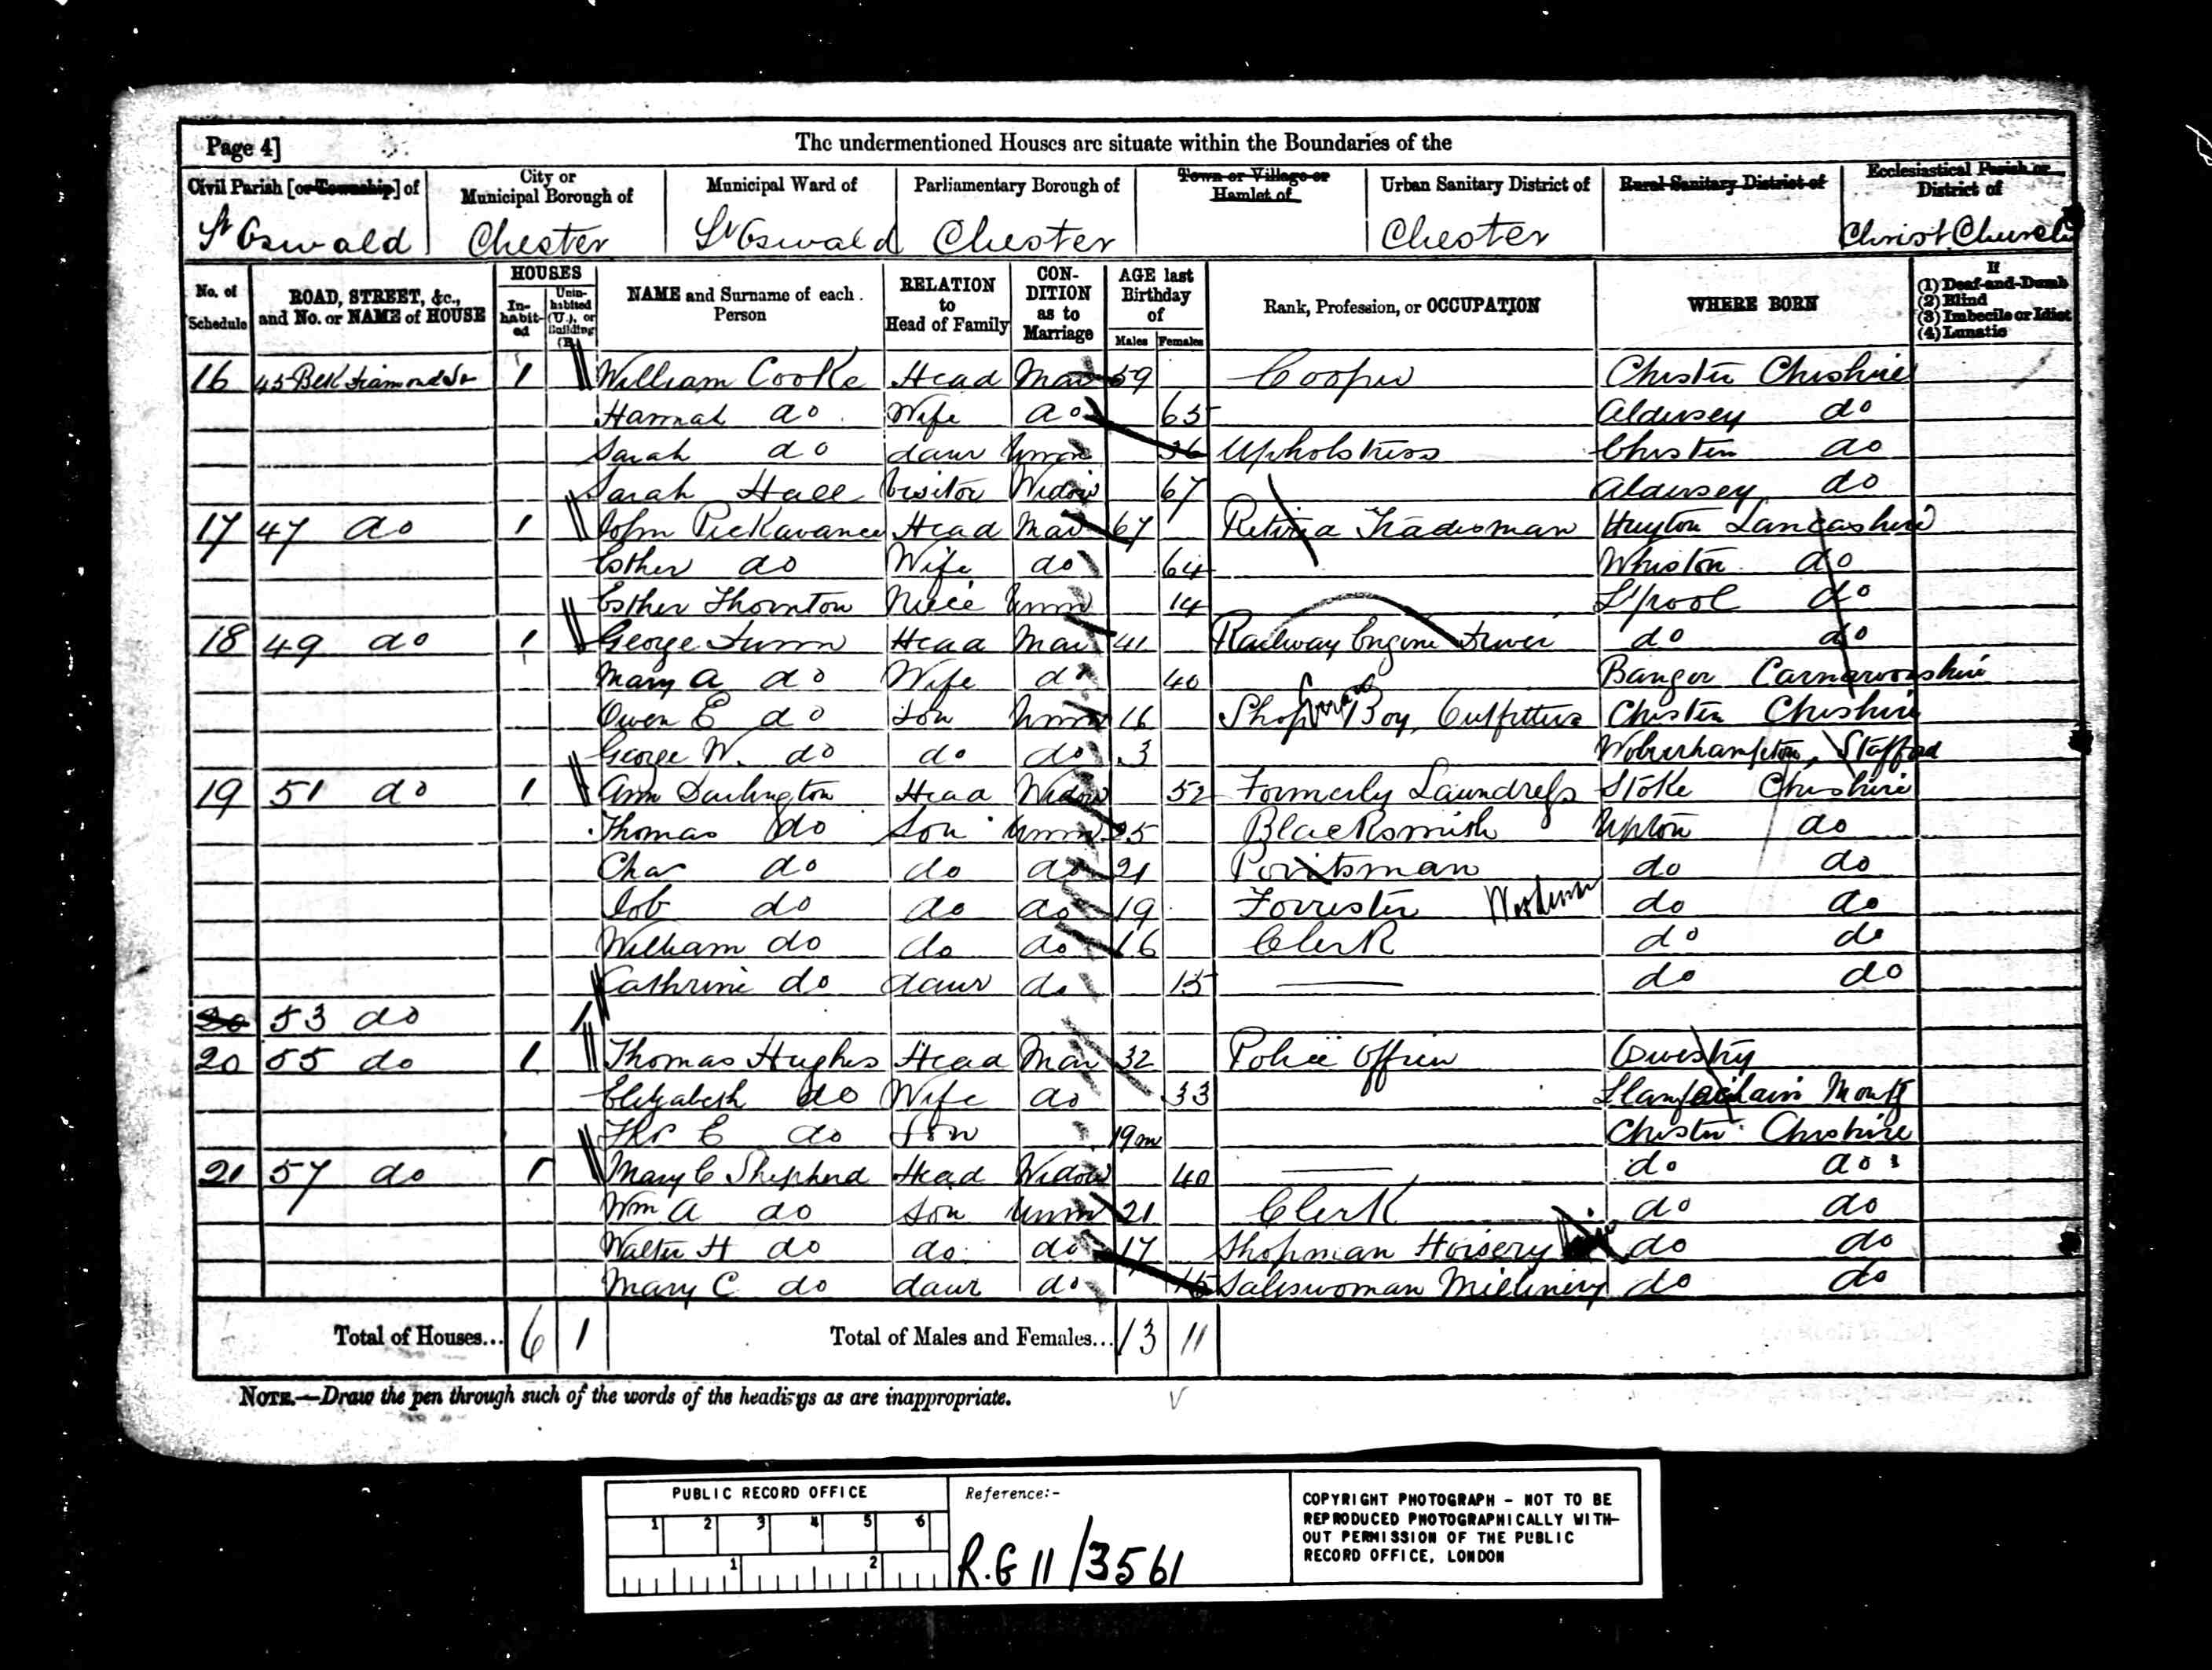 Page 4]
The undermentioned Houses are situate within the Boundaries of the
Civil Parish [or Township] of
City or Municipal Borough of
Municipal Ward of
Parliamentary Borough of
Town or Village or Hamlet of
Urban Sanitary District of
Rural Sanitary District of
Ecclesiastical Parish or District of
St Oswald Chester St Oswald Chester Chester Christ Church
No. of Schedule
ROAD, STREET, &c., and No. or NAME of HOUSE
HOUSES
In-habit-ed
Unin-habited (U.), or Building (B.)
NAME and Surname of each Person
RELATION to Head of Family
CON-DITION as to Marriage
AGE last Birthday of
Males Females
Rank, Profession, or OCCUPATION
WHERE BORN
If
(1) Deaf-and-Dumb
(2) Blind
(3) Imbecile or Idiot
(4) Lunatic
16 45 1 William Cooke Head Mar 59 Cooper Chester Cheshire
Hannah do Wife do 65 Aldersey do
Sarah do daur Unm 36 Upholstress Chester do
Sarah Hall Visitor Widow 67 Aldersey do
17 47 do 1 John Pickavance Head Mar 67 Retired Tradesman Huyton Lancashire
Esther do Wife do 64 Whiston do
Esther Thornton Niece Unm 14 L'pool do
18 49 do 1 George Head Mar 41 Railway Engine Driver do do
Mary A do Wife do 40 Bangor Carnarvonshire
Owen E do Son Unm 16 Shop Boy, Outfitters Chester Cheshire
George W. do do do 3 Wolverhampton, Stafford
19 51 do 1 Ann Darlington Head Widow 52 Formerly Laundress Stoke Cheshire
Thomas do Son Unm 25 Blacksmith Upton do
Chas do do do 21 do do
Job do do do 19 Forrester do do
William do do do 16 Clerk do do
Cathrine do daur do 15 — do do
20 53 do 1
20 55 do 1 Thomas Hughes Head Mar 32 Police Officer Oswestry
Elizabeth do Wife do 33
Thos E do Son 19m Chester Cheshire
21 57 do 1 Mary C Shepherd Head Widow 40 — do do
Wm A do Son Unm 21 Clerk do do
Walter H do do do 17 Shopman Hoisery do do
Mary C do daur do 15 Saleswoman Millinery do do
Total of Houses... 6 1 Total of Males and Females... 13 11
NOTE.—Draw the pen through such of the words of the headings as are inappropriate.
PUBLIC RECORD OFFICE
1 2 3 4 5 6
1 2
Reference:-
R.G 11/3561
COPYRIGHT PHOTOGRAPH - NOT TO BE
REPRODUCED PHOTOGRAPHICALLY WITH-
OUT PERMISSION OF THE PUBLIC
RECORD OFFICE, LONDON